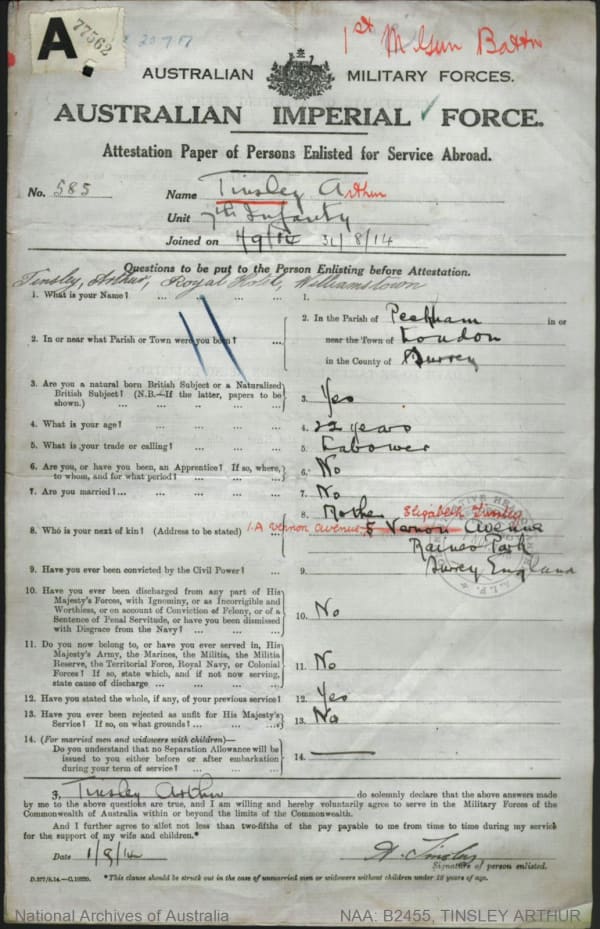 A 77562
1st M. Gun Battn
AUSTRALIAN MILITARY FORCES.
AUSTRALIAN IMPERIAL FORCE.
Attestation Paper of Persons Enlisted for Service Abroad.
No. 585 Name Tinsley Arthur
Unit 7th Infantry
Joined on 4/9/14 31/8/14
Questions to be put to the Person Enlisting before Attestation.
Tinsley, Arthur, Royal Hotel, Williamstown
1. What is your Name? ... ... ... 1.
2. In or near what Parish or Town were you born? ... 2. In the Parish of Peckham in or
near the Town of London
in the County of Surrey
3. Are you a natural born British Subject or a Naturalized
British Subject? (N.B.—If the latter, papers to be
shown.) 3. Yes
4. What is your age? 4. 22 years
5. What is your trade or calling? 5. Labower
6. Are you, or have you been, an Apprentice? If so, where,
to whom, and for what period? 6. No
7. Are you married? 7. No
8. Who is your next of kin? (Address to be stated) 8. Mother Elizabeth Tinsley
1.A Vernon Avenue 5 Vernon Avenue
Raines Park
Surrey England
9. Have you ever been convicted by the Civil Power? 9.
10. Have you ever been discharged from any part of His
Majesty's Forces, with Ignominy, or as Incorrigible and
Worthless, or on account of Conviction of Felony, or of a
Sentence of Penal Servitude, or have you been dismissed
with Disgrace from the Navy? 10. No
11. Do you now belong to, or have you ever served in, His
Majesty's Army, the Marines, the Militia, the Militia
Reserve, the Territorial Force, Royal Navy, or Colonial
Forces? If so, state which, and if not now serving,
state cause of discharge 11. No
12. Have you stated the whole, if any, of your previous service? 12. Yes
13. Have you ever been rejected as unfit for His Majesty's
Service? If so, on what grounds? 13. No
14. (For married men and widowers with children)—
Do you understand that no Separation Allowance will be
issued to you either before or after embarkation
during your term of service? 14. —
I, Tinsley Arthur do solemnly declare that the above answers made
by me to the above questions are true, and I am willing and hereby voluntarily agree to serve in the Military Forces of the
Commonwealth of Australia within or beyond the limits of the Commonwealth.
And I further agree to allot not less than two-fifths of the pay payable to me from time to time during my service
for the support of my wife and children.*
Date 1/9/14 A. Tinsley
Signature of person enlisted.
*This clause should be struck out in the case of unmarried men or widowers without children under 18 years of age.
National Archives of Australia NAA: B2455, TINSLEY ARTHUR